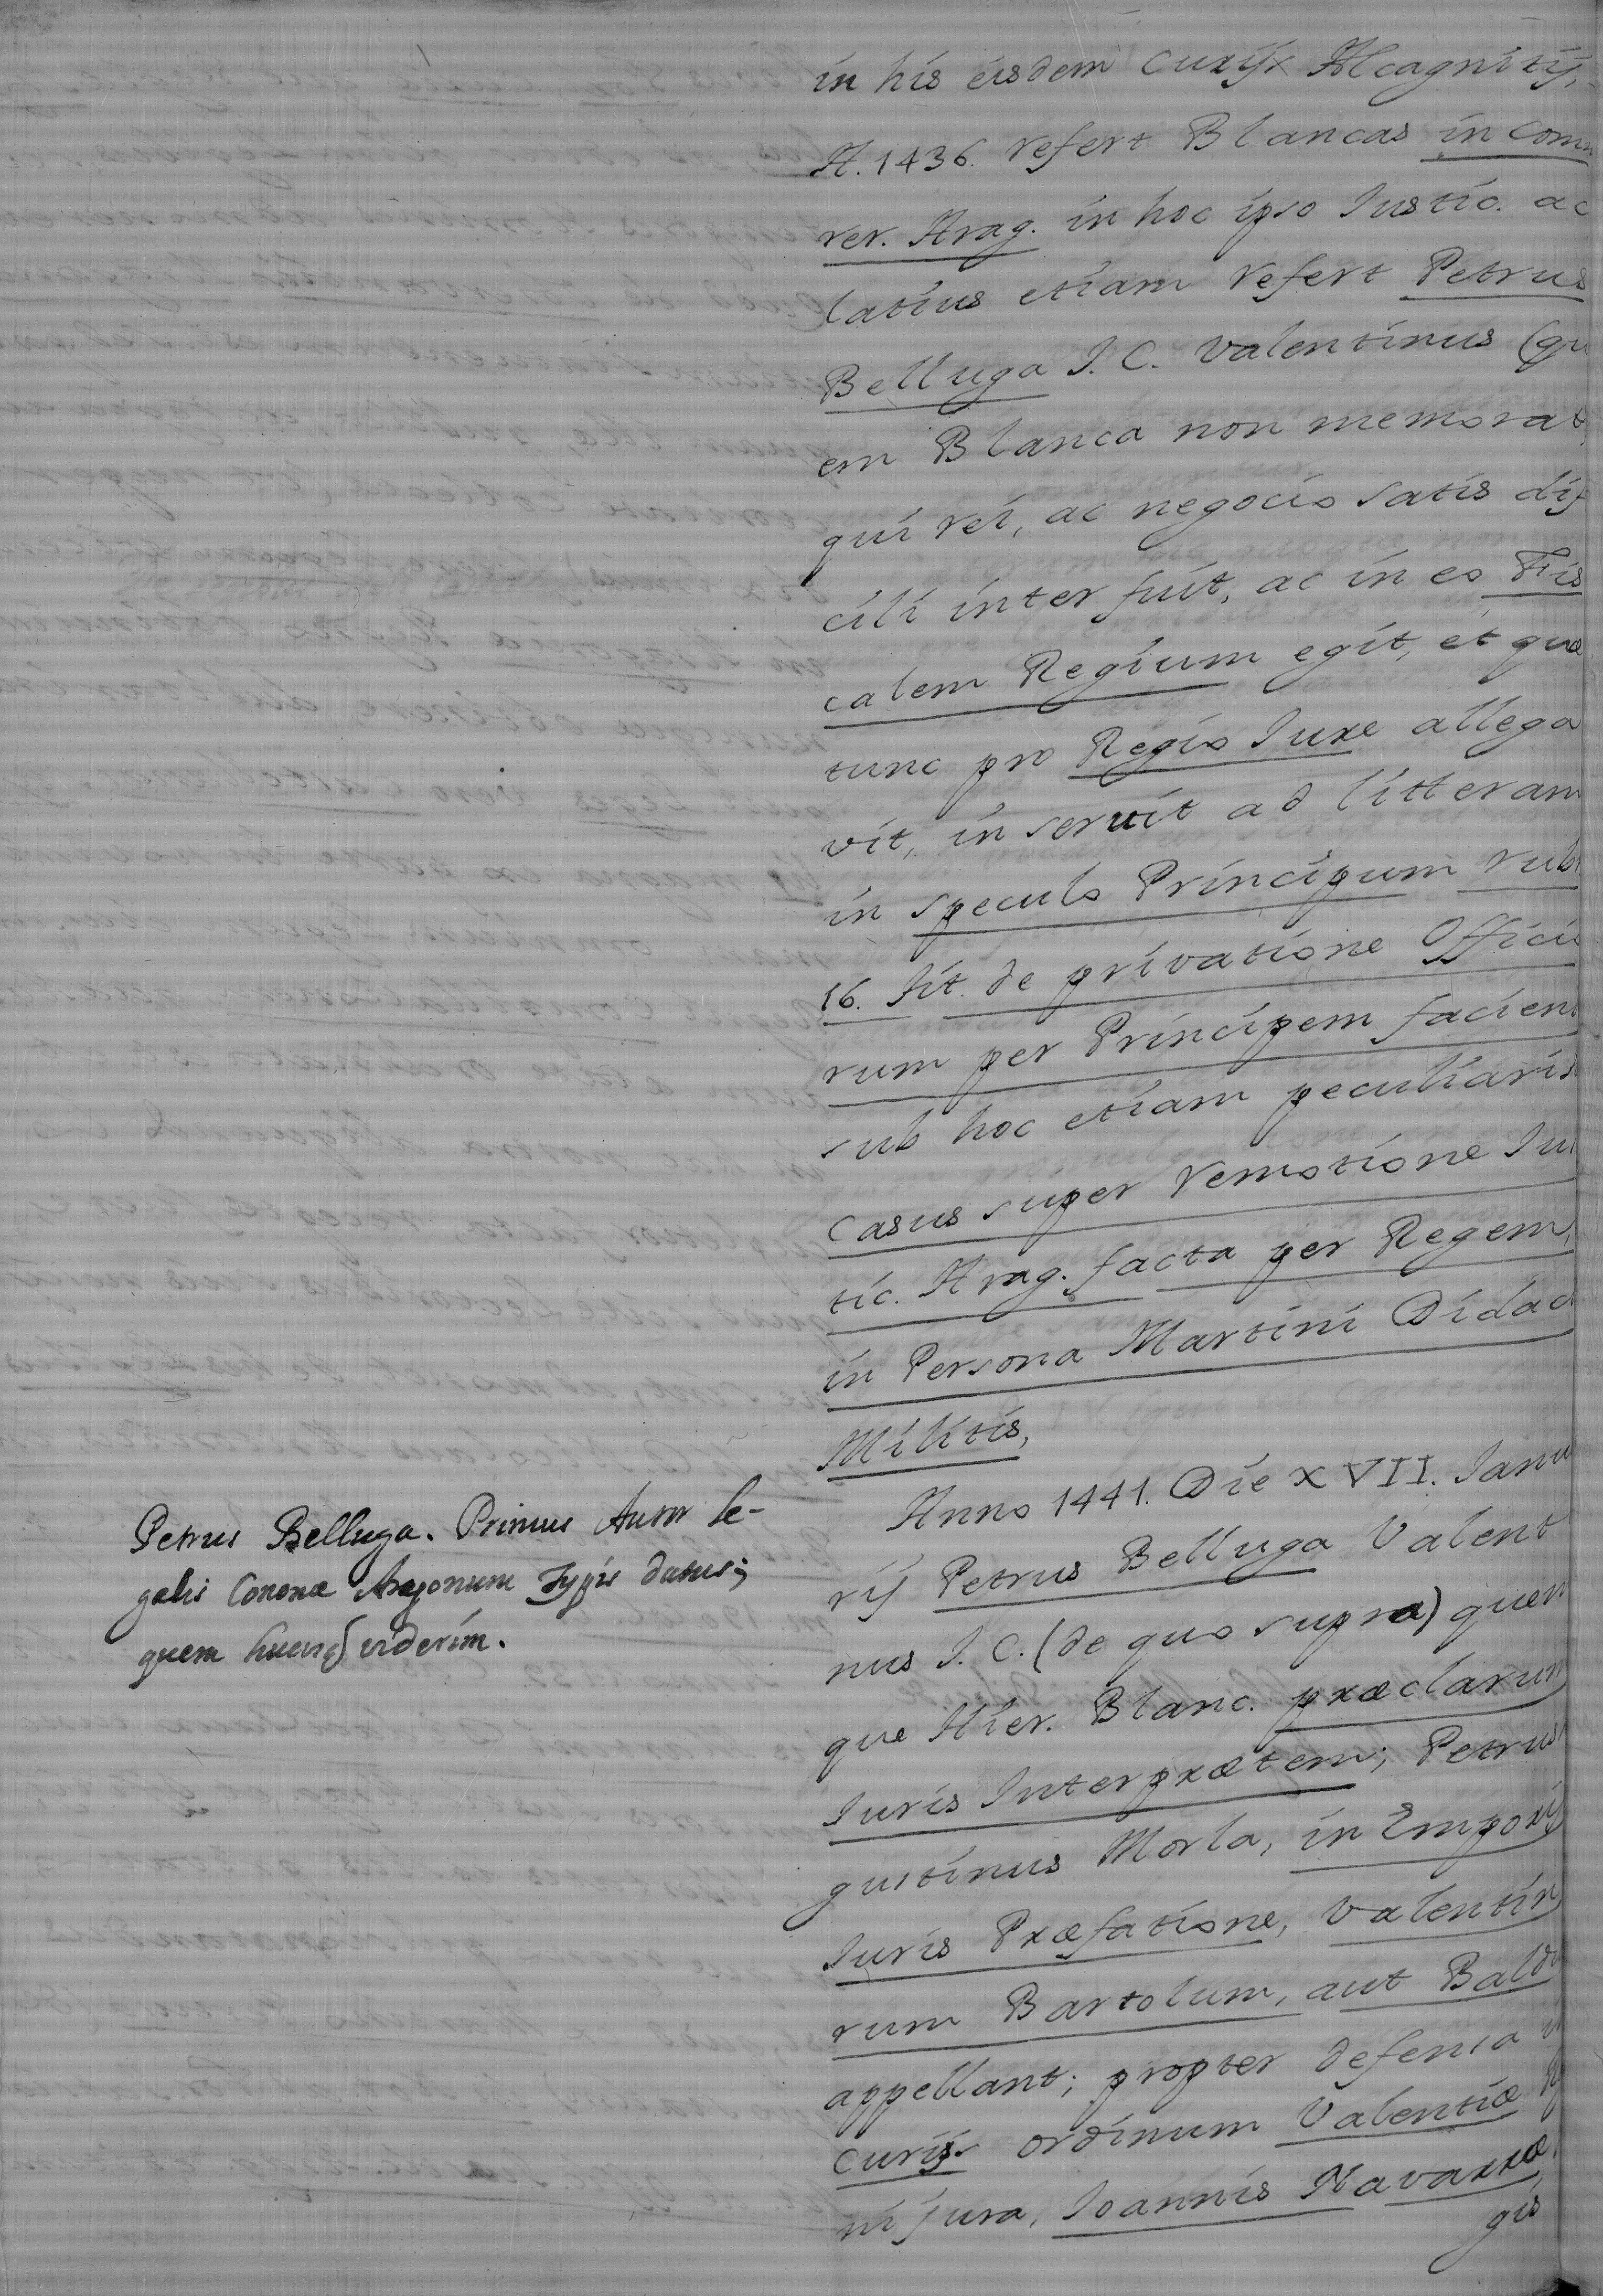 in his eisdem curijs Alcagnitij,
A. 1436. refert Blancas in Comm
rer. Arag. in hoc ipso Iustic. ac
latius etiam refert Petrus
Belluga J. C. Valentinus (qu
em Blanca non memorat,
qui rei, ac negocio satis dif
cili inter fuit, ac in eo Fis
calem Regium egit, et quæ
tunc pro Regio Iure allega
vit, in seruit ad litteram
in speculo Principum rubr
16. tit. de privatione Officio
rum per Principem faciend
sub hoc etiam peculiaris
Casus super remotione Ius
tic. Arag. facta per Regem,
in Persona Martini Didaci
Militis,
Anno 1441. Die XVII. Ianu
rij Petrus Belluga Valent
nus J. C. (de quo supra) quem
que Hier. Blanc. præclarum
Iuris Interprætem; Petrus
gustinus Morla, in Emporij
Iuris Præfatione, Valentin
rum Bartolum, aut Baldu
appellant; propter defensa
Curijs ordinum Valentiæ
ni jura, Ioannis Navarræ,
gis
Petrus Belluga. Primus Autor le-
galis Coronæ Aragonum Typis datus;
quem hucusq viderim.